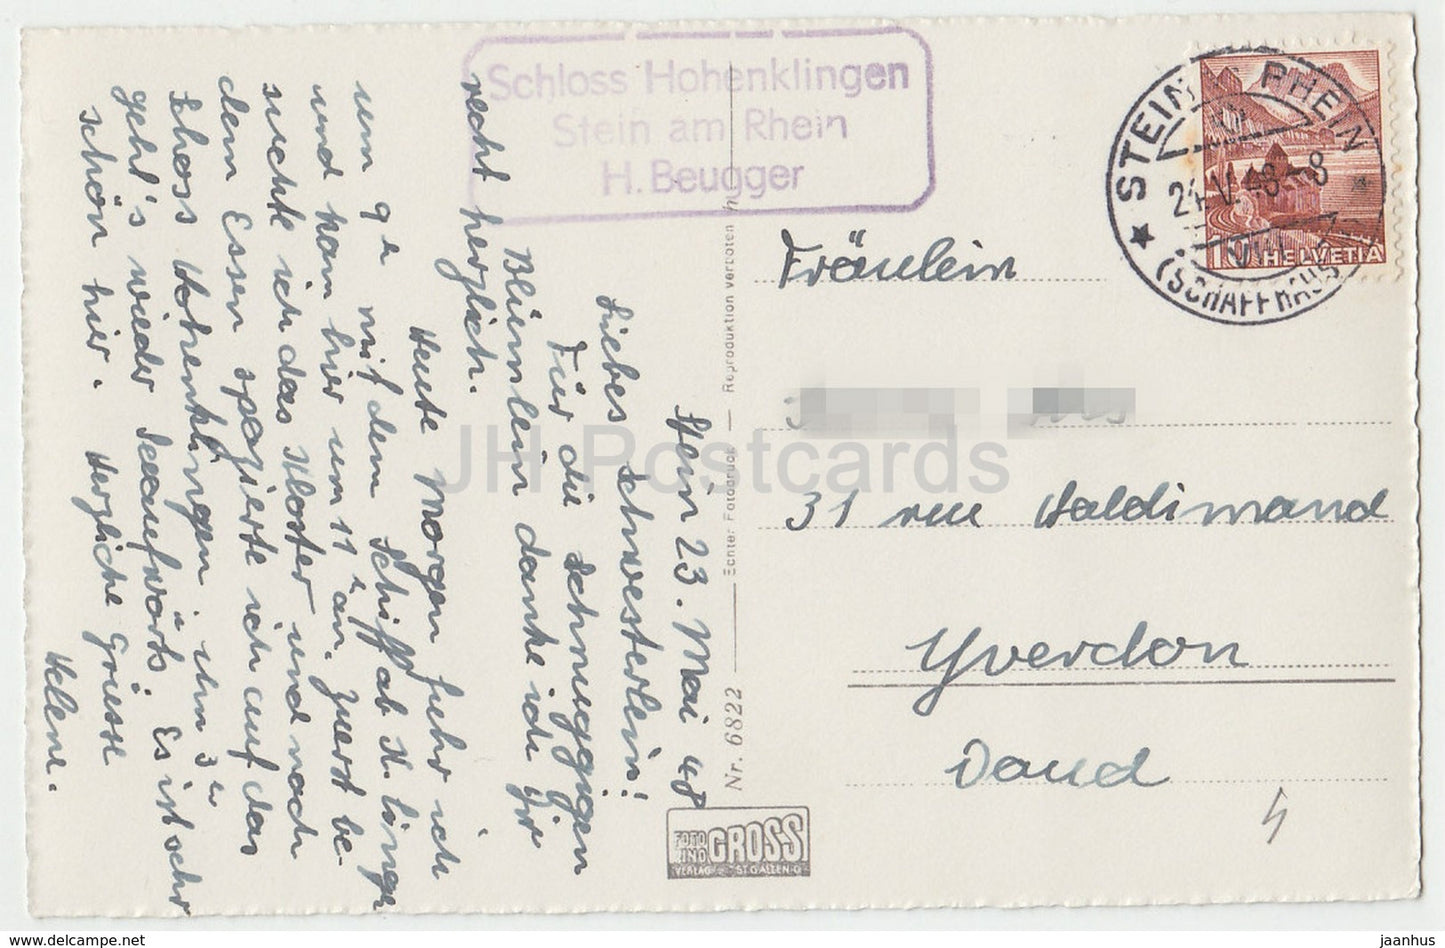 Schloss Hohenklingen
Stein am Rhein
H. Beugger
STEIN RHEIN
24.V.48-8
(SCHAFFHAUSEN)
10 HELVETIA
Stein 23. Mai 48
Liebes Schwesterlein!
Für die schnuggigen
Blümlein danke ich Dir
recht herzlich.
Heute Morgen fuhr ich
um 9 h mit dem Schiff ab K. lingen
und kam hier um 11 h an. Zuerst be-
suchte ich das Kloster und nach
dem Essen spazierte ich auf das
Schloss Hohenklingen, um 3 h
geht's wieder seeaufwärts. Es ist sehr
schön hier. Herzliche Grüsse
Helene.
Echter Fotodruck — Reproduktion verboten
Nr. 6822
FOTO UND GROSS
VERLAG ST. GALLEN
Fräulein
31 rue Haldimand
Yverdon
Vaud
JH Postcards
www.delcampe.net
jaanhus